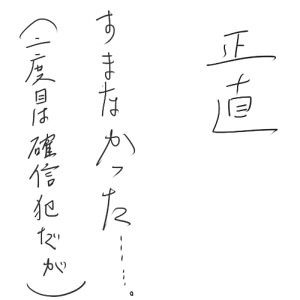 正直
すまなかった……。
(二度目は確信犯だが)